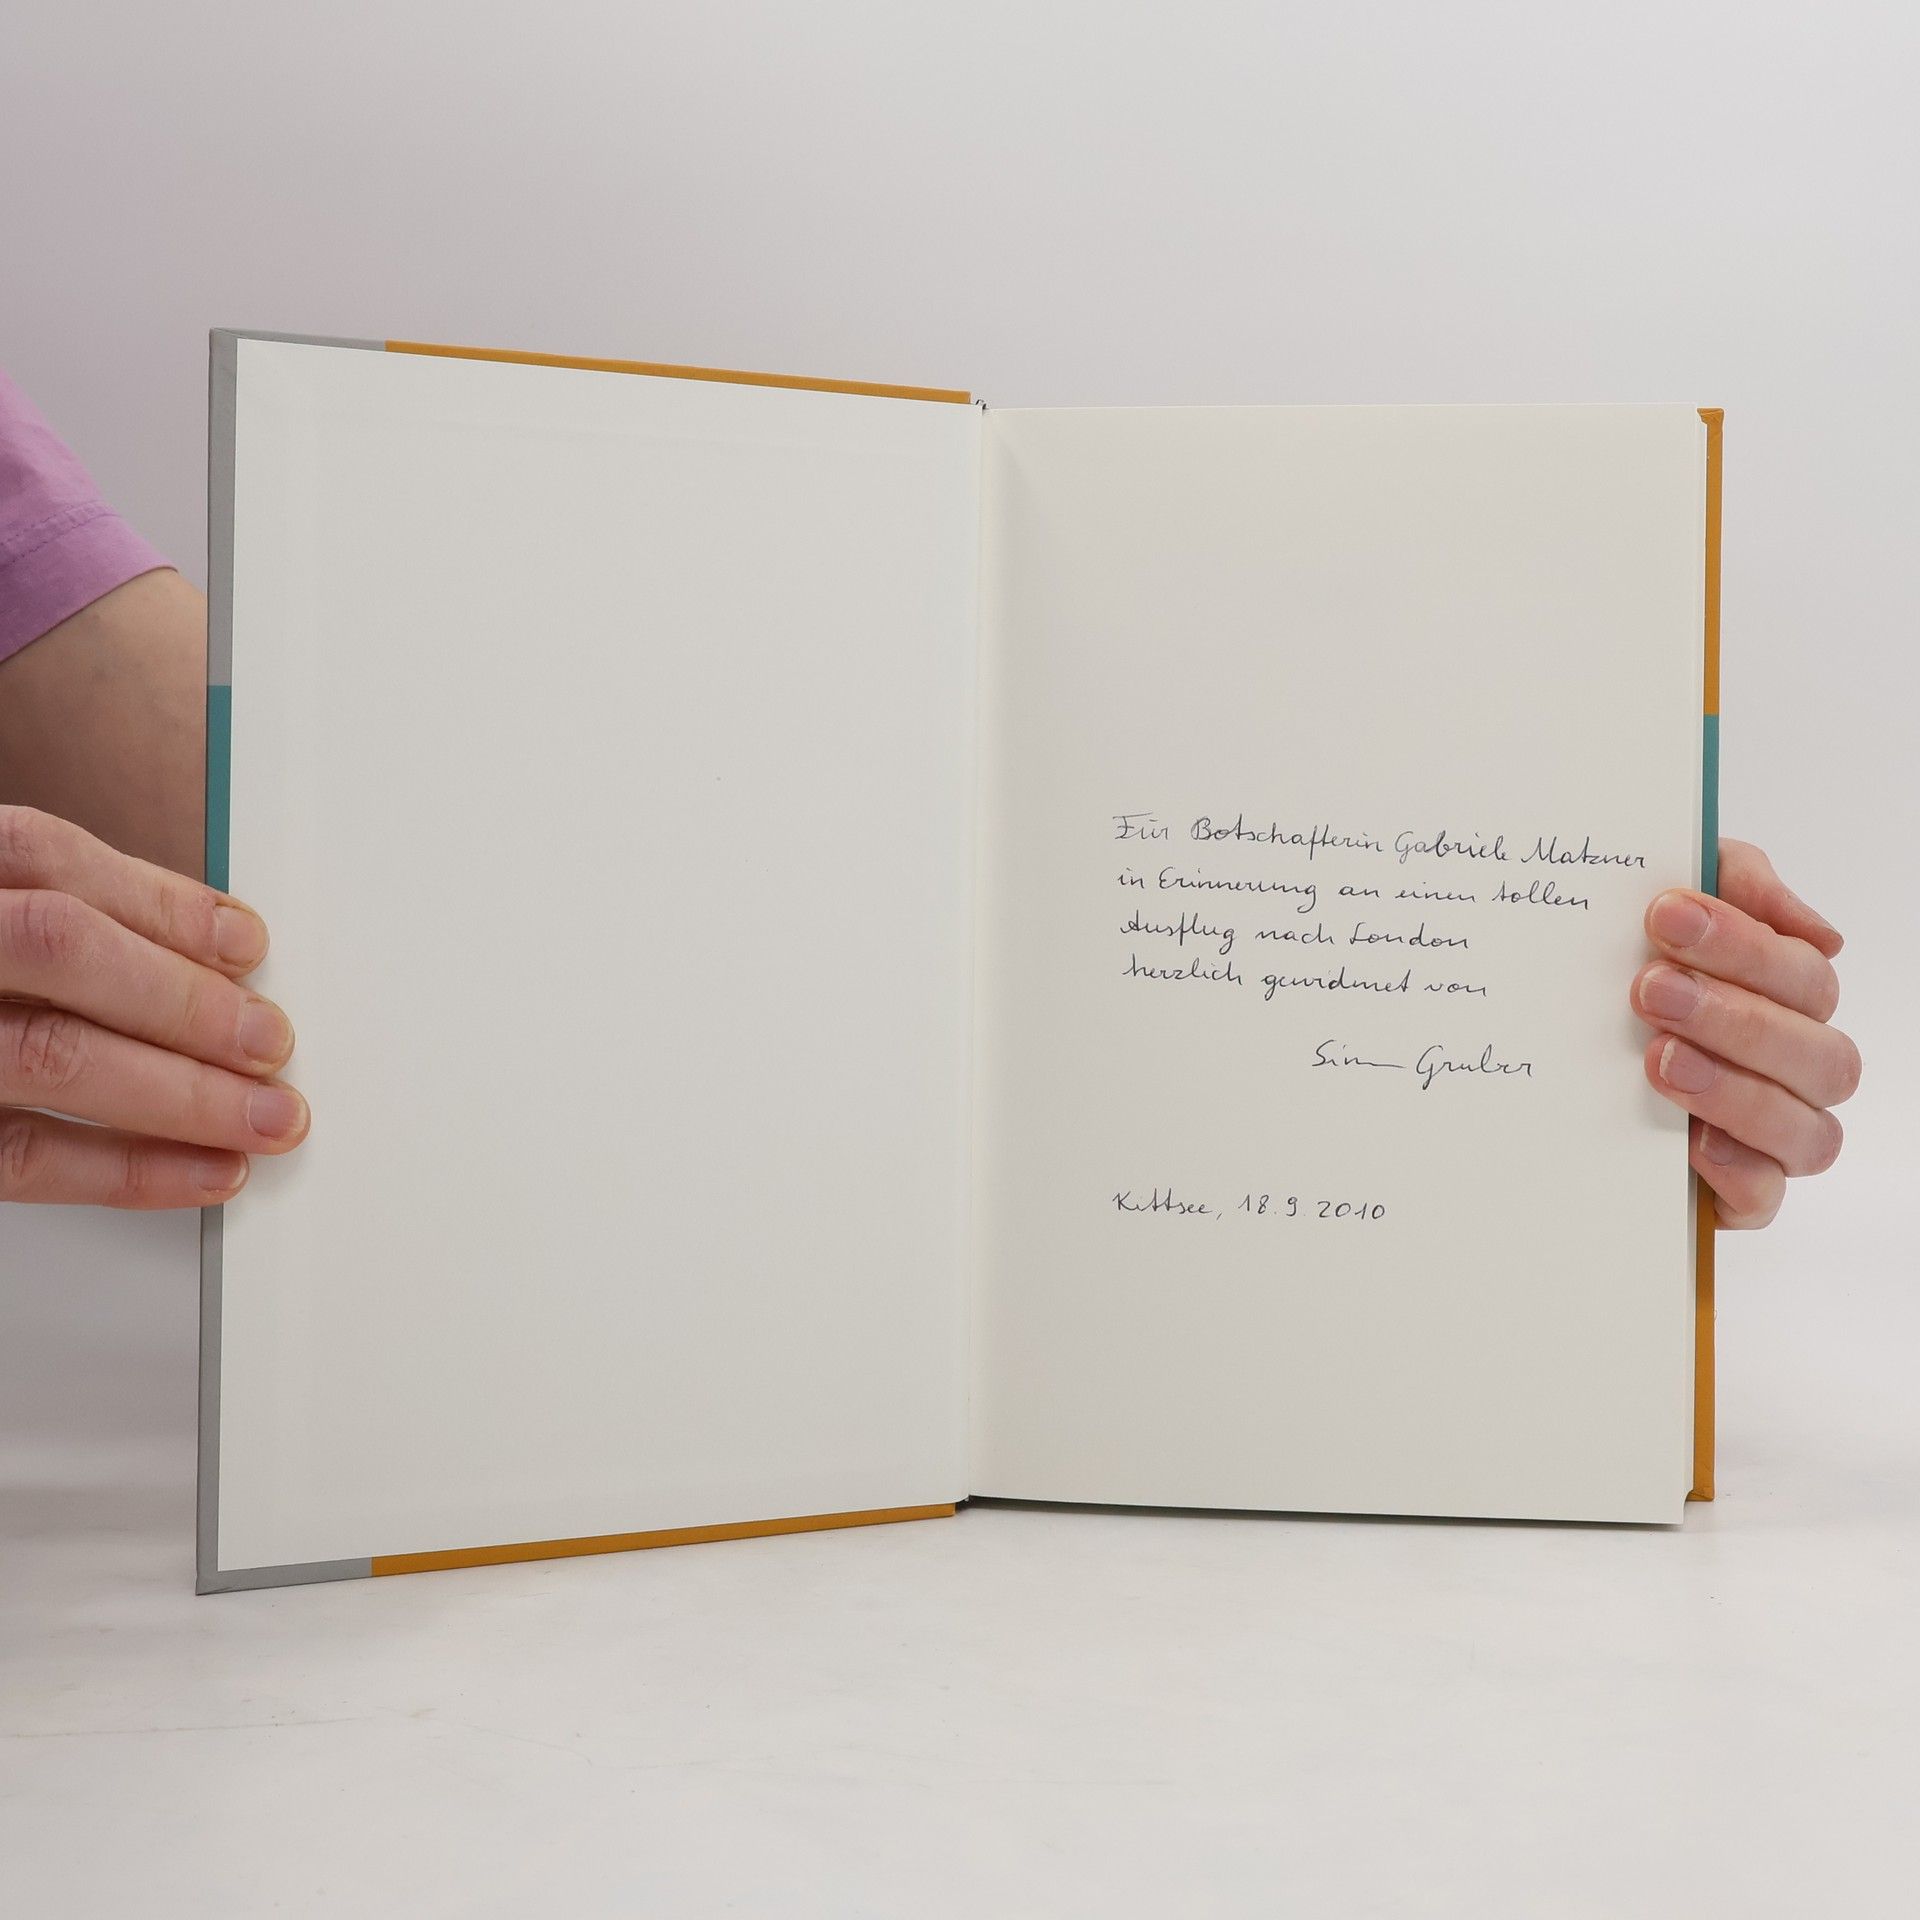 Für Botschafterin Gabriele Matzner
in Erinnerung an einen tollen
Ausflug nach London
herzlich gewidmet von
Gruber
Kittsee, 18.9.2010